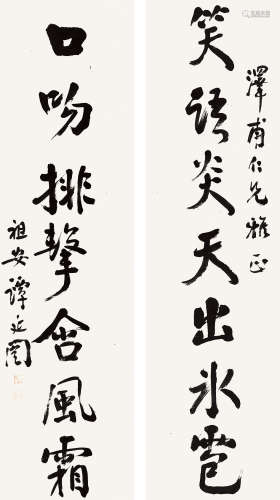 澤甫仁兄雅正
笑語炎天出冰雹
口吻排擊含風霜
祖安譚延闓